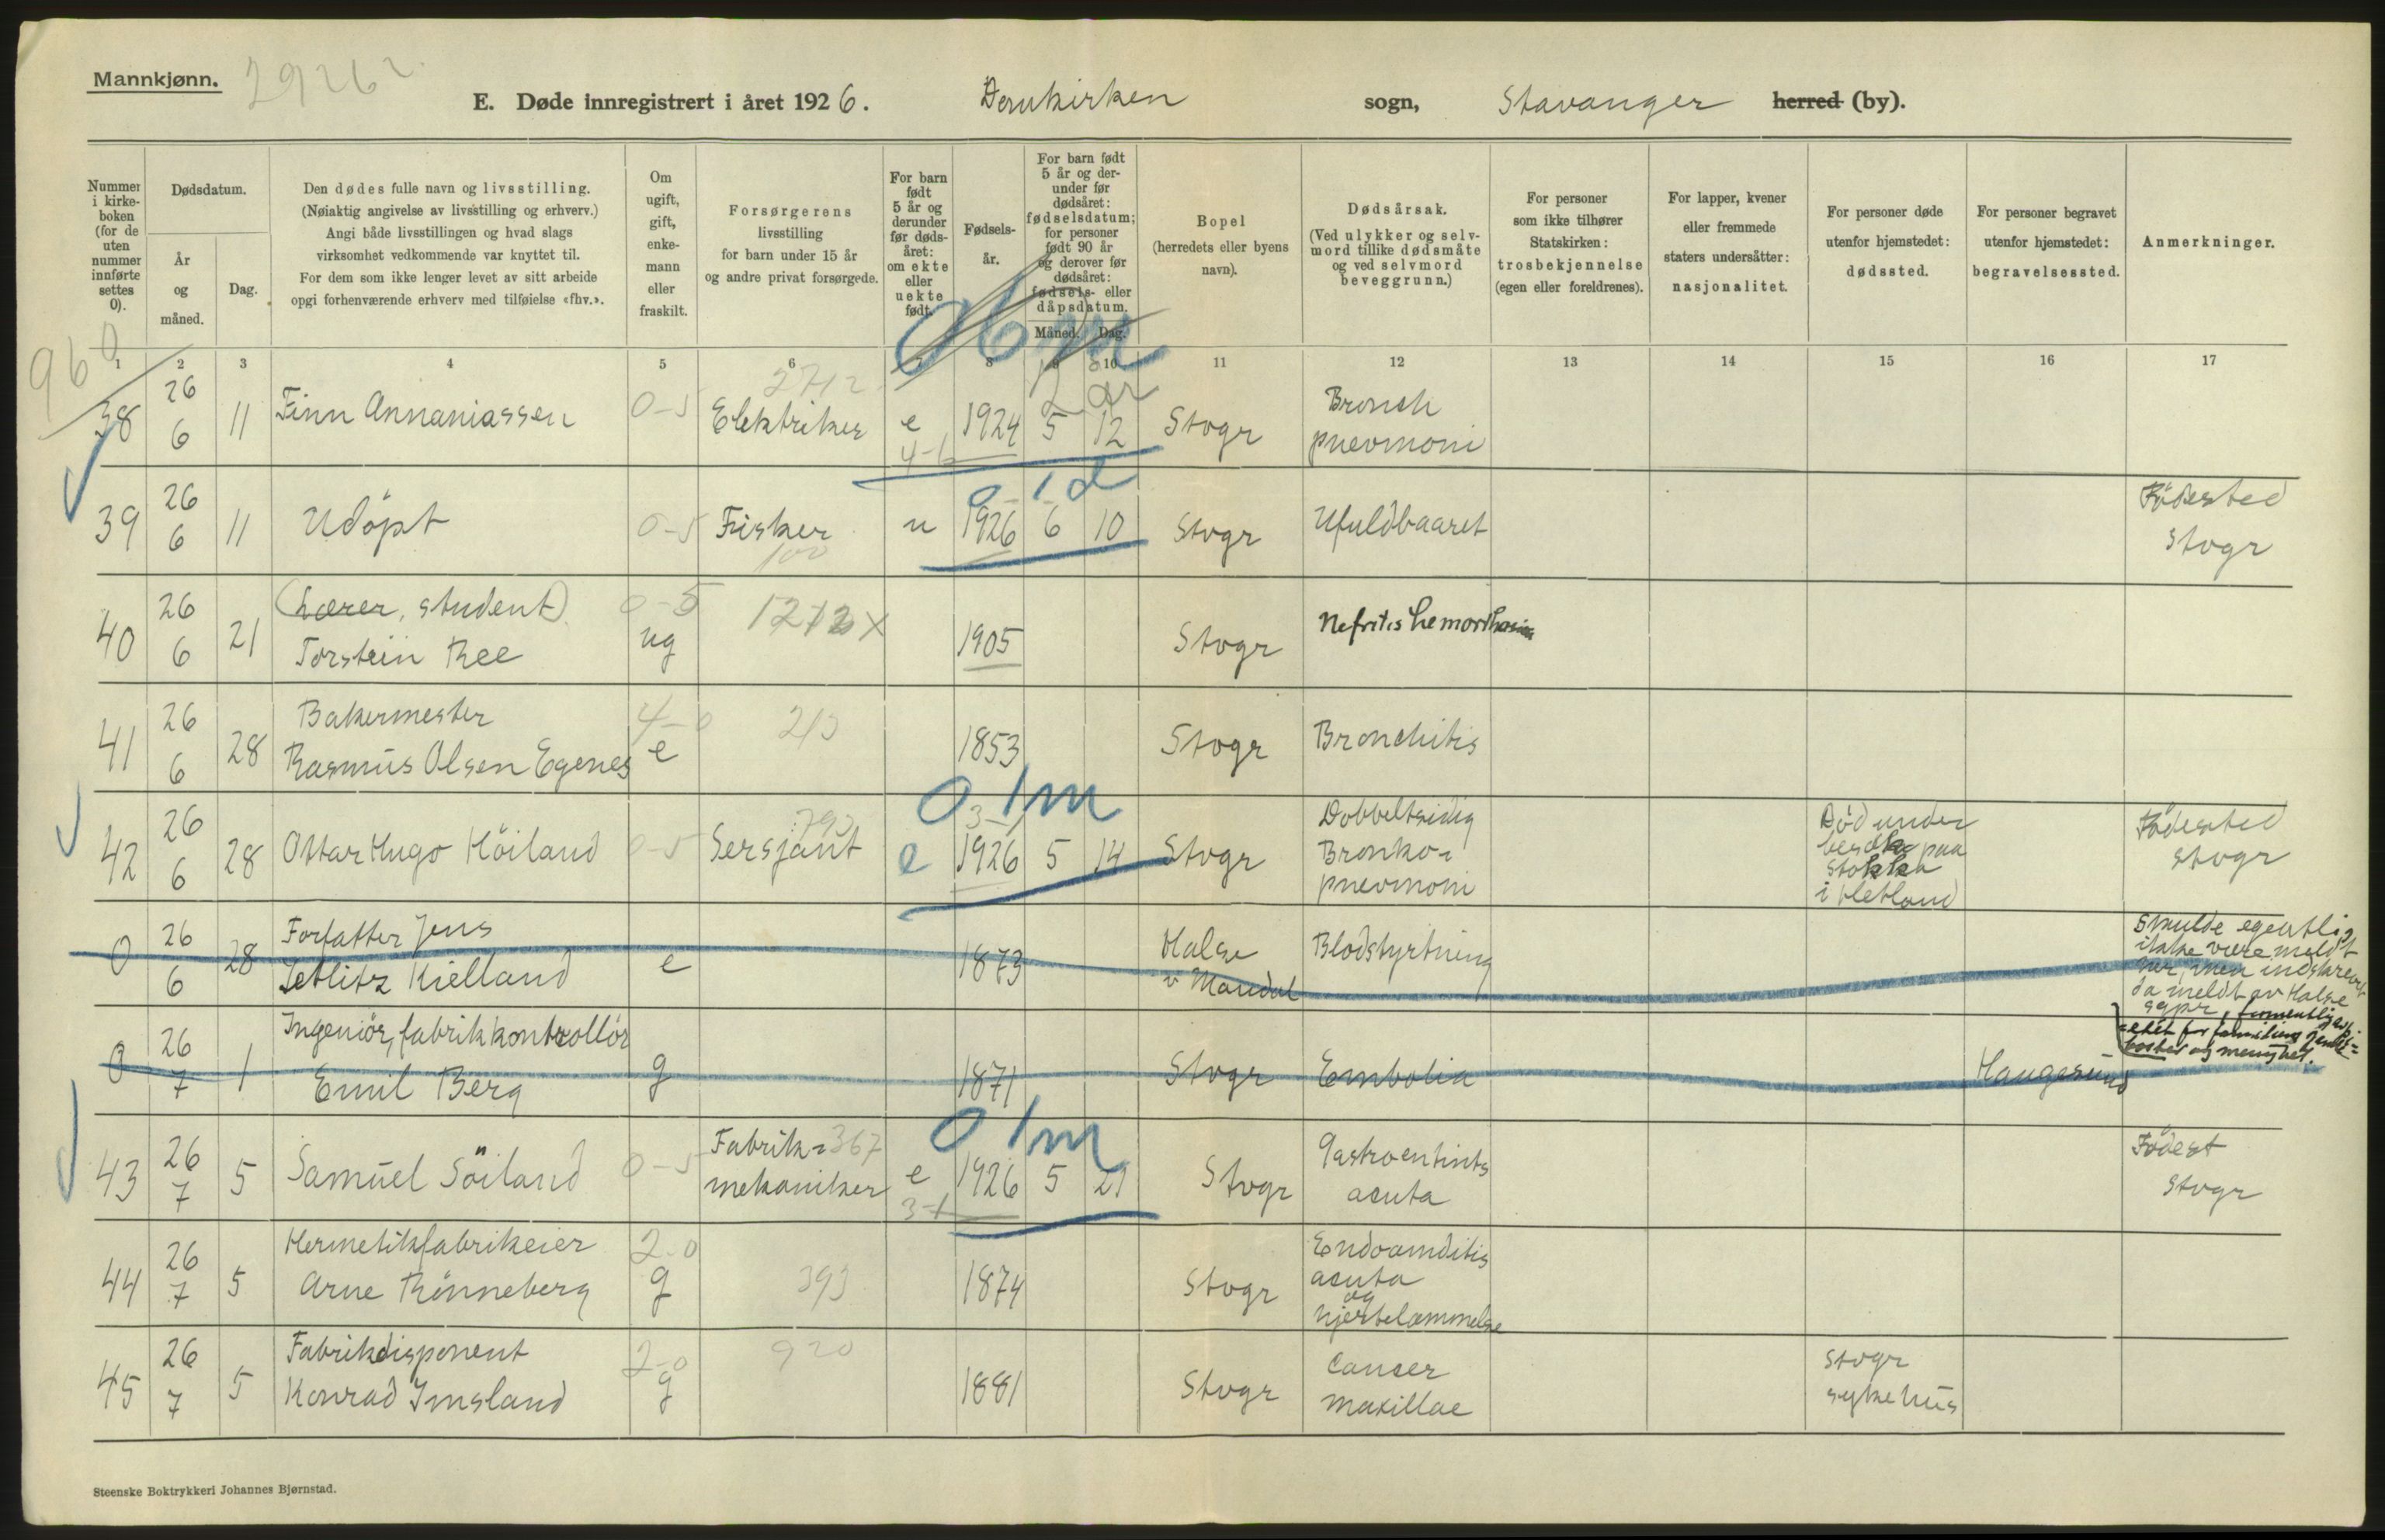 Mannkjønn.
E. Døde innregistrert i året 1926. Domkirken sogn, Stavanger herred (by).
Nummer i kirkeboken (for de uten nummer innførte settes 0).
Dødsdatum.
År og måned.
Dag.
Den dødes fulle navn og livsstilling.
(Nøiaktig angivelse av livsstilling og erhverv.)
Angi både livsstillingen og hvad slags
virksomhet vedkommende var knyttet til.
For dem som ikke lenger levet av sitt arbeide
opgi forhenværende erhverv med tilføielse «fhv.».
Om ugift, gift, enkemann eller fraskilt.
Forsørgerens
livsstilling
for barn under 15 år
og andre privat forsørgede.
For barn født 5 år og derunder før dødsåret: om ekte eller uekte født.
Fødselsår.
For barn født 5 år og derunder før dødsåret: fødselsdatum; for personer født 90 år og derover før dødsåret: fødsels- eller dåpsdatum.
Måned. Dag.
Bopel
(herredets eller byens
navn).
Dødsårsak.
(Ved ulykker og selvmord tillike dødsmåte og ved selvmord beveggrunn.)
For personer
som ikke tilhører
Statskirken:
trosbekjennelse
(egen eller foreldrenes).
For lapper, kvener
eller fremmede
staters undersåtter:
nasjonalitet.
For personer døde
utenfor hjemstedet:
dødssted.
For personer begravet
utenfor hjemstedet:
begravelsessted.
Anmerkninger.
1 2 3 4 5 6 7 8 9 10 11 12 13 14 15 16 17
38 26 6 11 Finn Annaniassen 0-5 Elektriker e 4-1 1924 5 12 Stvgr Bronch pnevmoni
39 26 6 11 Udöpt 0-5 Fisker 100 u 0-1d 1926 6 10 Stvgr Ufuldbaaret Födested Stvgr
40 26 6 21 (Lærer, student) Torstein Ree 0-5 ug 1905 Stvgr Nefritis
41 26 6 28 Bakermester Rasmus Olsen Egenes 4-0 e 1853 Stvgr Bronchitis
42 26 6 28 Ottar Hugo Höiland 0-5 Sersjant e 0 1m 1926 5 14 Stvgr Dobbeltsidig Bronko- pnevmoni Död under besök paa Stokka i Hetland Födested Stvgr
0 26 6 28 Forfatter Jens Zetlitz Kielland e 1873 Halse v Mandal Blodstyrtning Skulde egentlig ikke være meldt her, men indskrevet da meldt av Halse
0 26 7 1 Ingeniör, fabrikkontrollör Emil Berg g 1871 Stvgr Embolia Haugesund
43 26 7 5 Samuel Söiland 0-5 Fabrik- 367 mekaniker e 3-1 0 1m 1926 5 21 Stvgr Gastroentirits acuta Födest Stvgr
44 26 7 5 Hermetikfabrikeier Arne Rönneberg 2-0 g 393 1874 Stvgr acuta og hjertelammelse
45 26 7 5 Fabrikdisponent Konrad Imsland 2-0 g 920 1881 Stvgr Cancer maxillae Stvgr sykehus
Steenske Boktrykkeri Johannes Bjørnstad.